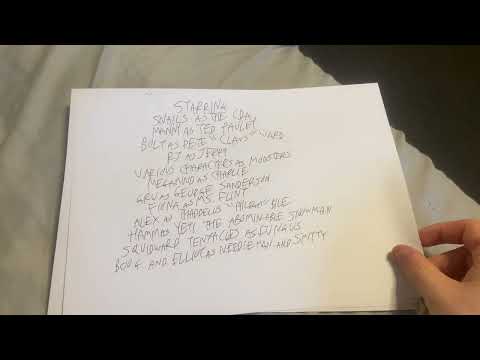 STARRING
SNAILS AS THE CDA
MANNY AS TED PAULEY
BOLT AS PETE "CLAWS" WARD
RJ AS JERRY
VARIOUS CHARACTERS AS MONSTERS
MEGAMIND AS CHARLIE
GRU AS GEORGE SANDERSON
FIONA AS MS. FLINT
ALEX AS THADDEUS "PHLEGM" BILE
HAMM AS YETI THE ABOMINABLE SNOWMAN
SQUIDWARD TENTACLES AS FUNGUS
BOOG AND ELLIOT AS NEEDLEMAN AND SMITTY